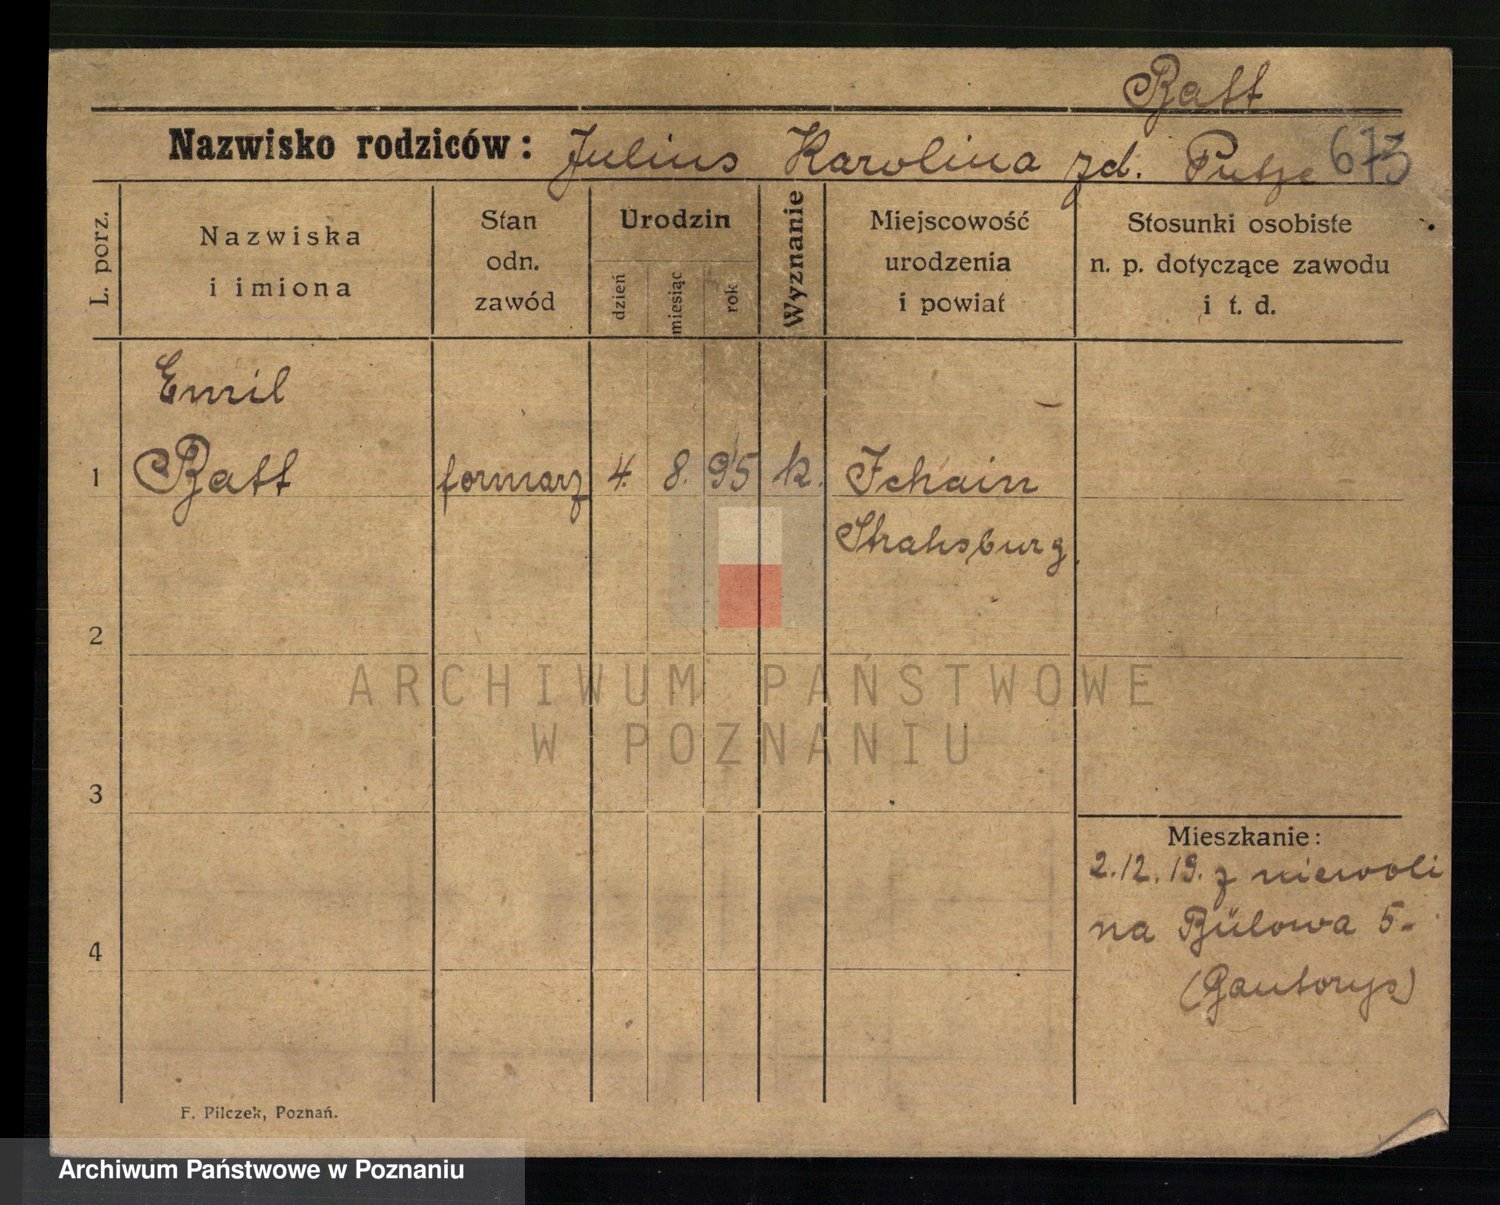 Batt
Nazwisko rodziców: Julius Karolina zd. Putze 673
L. porz.
Nazwiska
i imiona
Stan
odn.
zawód
Urodzin
dzień
miesiąc
rok
Wyznanie
Miejscowość
urodzenia
i powiat
Stosunki osobiste
n. p. dotyczące zawodu
i t. d.
Emil
1 Batt formarz 4. 8. 95 k.
Strahsburg
2
ARCHIWUM PAŃSTWOWE
W POZNANIU
3
Mieszkanie:
2.12.19. z niewoli
4 na Bülowa 5.
F. Pilczek, Poznań.
Archiwum Państwowe w Poznaniu